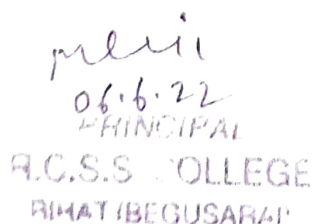 06.6.22
PRINCIPAL
R.C.S.S COLLEGE
BIHAT (BEGUSARAI)